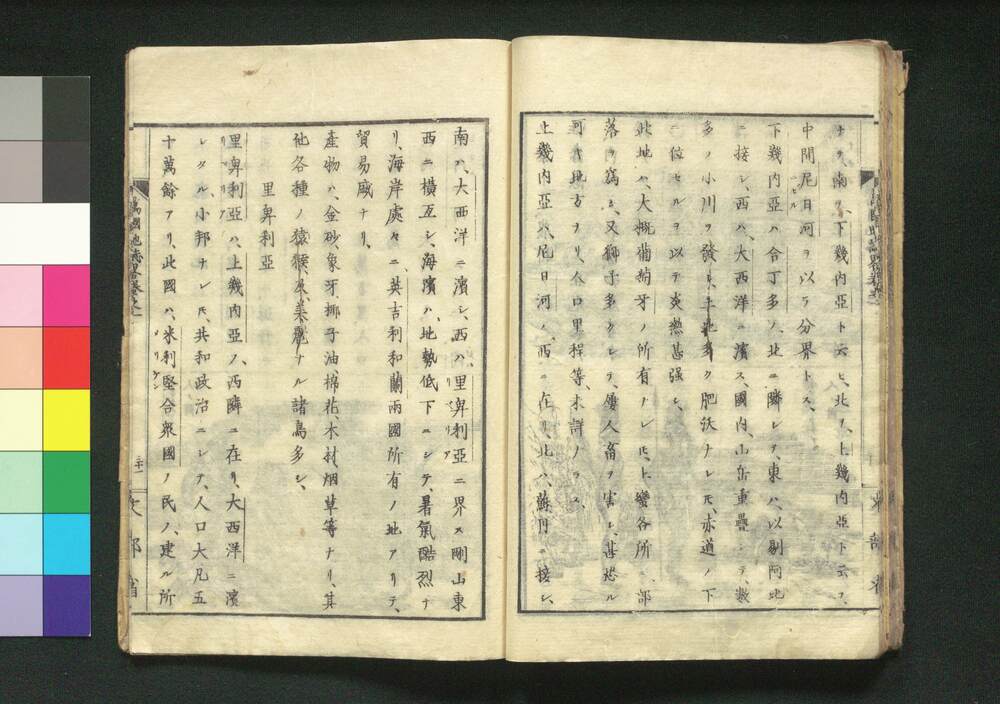 ナリ、南ヲ、下幾内亞ト云ヒ、北ヲ、上幾内亞ト云フ、
中間尼日河ヲ以テ分界トス、
下幾内亞ハ合丁多ノ、北ニ隣シテ、東ハ、以剔阿比
ニ接シ、西ハ、大西洋ニ濱ス、國内、山岳重疊シテ、數
多ノ小川ヲ發シ、土地多ク肥沃ナレ𪜈、赤道ノ下
ニ位セルヲ以テ炎熱甚强シ、
此地ハ、大概葡萄牙ノ所有ナレ𪜈、土蠻各所ニ部
落ヲ爲ス、又獅子多クシテ、屢人畜ヲ害シ、甚恐ル
可キ地方ナリ、人口里程等、未詳ノラス、
上幾内亞ハ、尼日河ノ、西ニ在リ、北ハ、蘇丹ニ接シ、
南ハ、大西洋ニ濱シ、西ハ、里卑利亞ニ界ス剛山東
西ニ橫亙シ、海濱ハ、地勢低下ニシテ、暑氣酷烈ナ
リ、海岸處々ニ、英吉利和蘭兩國所有ノ地アリテ、
貿易盛ナリ、
產物ハ、金砂、象牙、椰子油、棉花、木材、烟草等ナリ、其
他各種ノ猿猴、及、美麗ナル諸鳥多シ、
里卑利亞
里卑利亞ハ、上幾内亞ノ、西隣ニ在リ、大西洋ニ濱
シタル、小邦ナレ𪜈、共和政治ニシテ、人口大凡五
十萬餘アリ、此國ハ、米利堅合衆國ノ民ノ、建ル所
萬國地誌畧卷之二
三十一
文部省